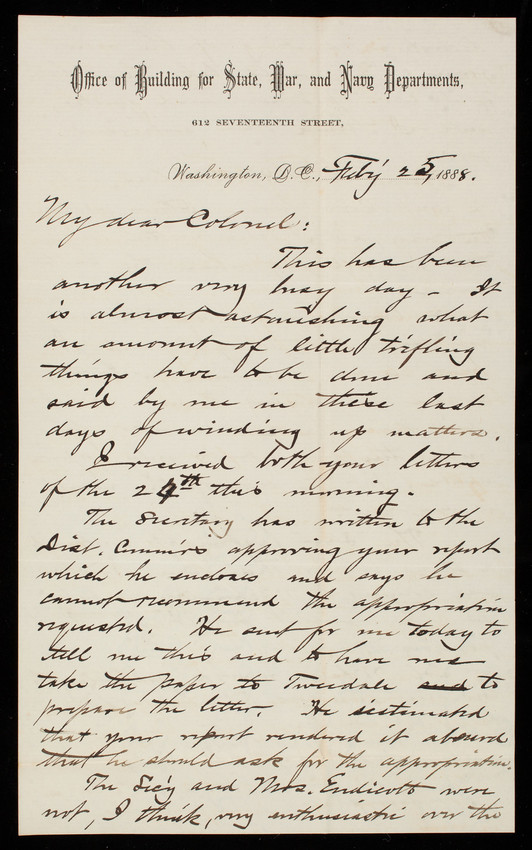 Office of Building for State, War, and Navy Departments,
612 SEVENTEENTH STREET,
Washington, D.C., Feb'y 25, 1888.
My dear Colonel:
This has been
another very busy day - It
is almost astonishing what
an amount of little trifling
things have to be done and
said by me in these last
days of winding up matters.
I received both your letters
of the 24th this morning.
The Secretary has written to the
Dist. Comm'rs approving your report
which he encloses and says he
cannot recommend the appropriation
requested. He sent for me today to
tell me this and to have me
take the paper to Tweedale and to
prepare the letter. He intimated
that your report rendered it absurd
that he should ask for the appropriation.
The Sec'y and Mrs. Endicott were
not, I think, very enthusiastic over the